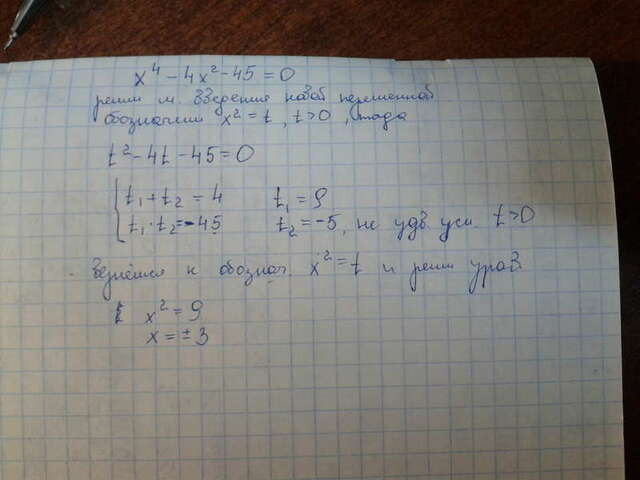 x⁴ - 4x² - 45 = 0
решим м. введения новой переменной
обозначим x² = t, t > 0, тогда
t² - 4t - 45 = 0
t₁ + t₂ = 4 t₁ = 9
t₁ · t₂ = -45 t₂ = -5, не удв. усл. t > 0
Вернёмся к обознач. x² = t и реши урав.
x² = 9
x = ± 3